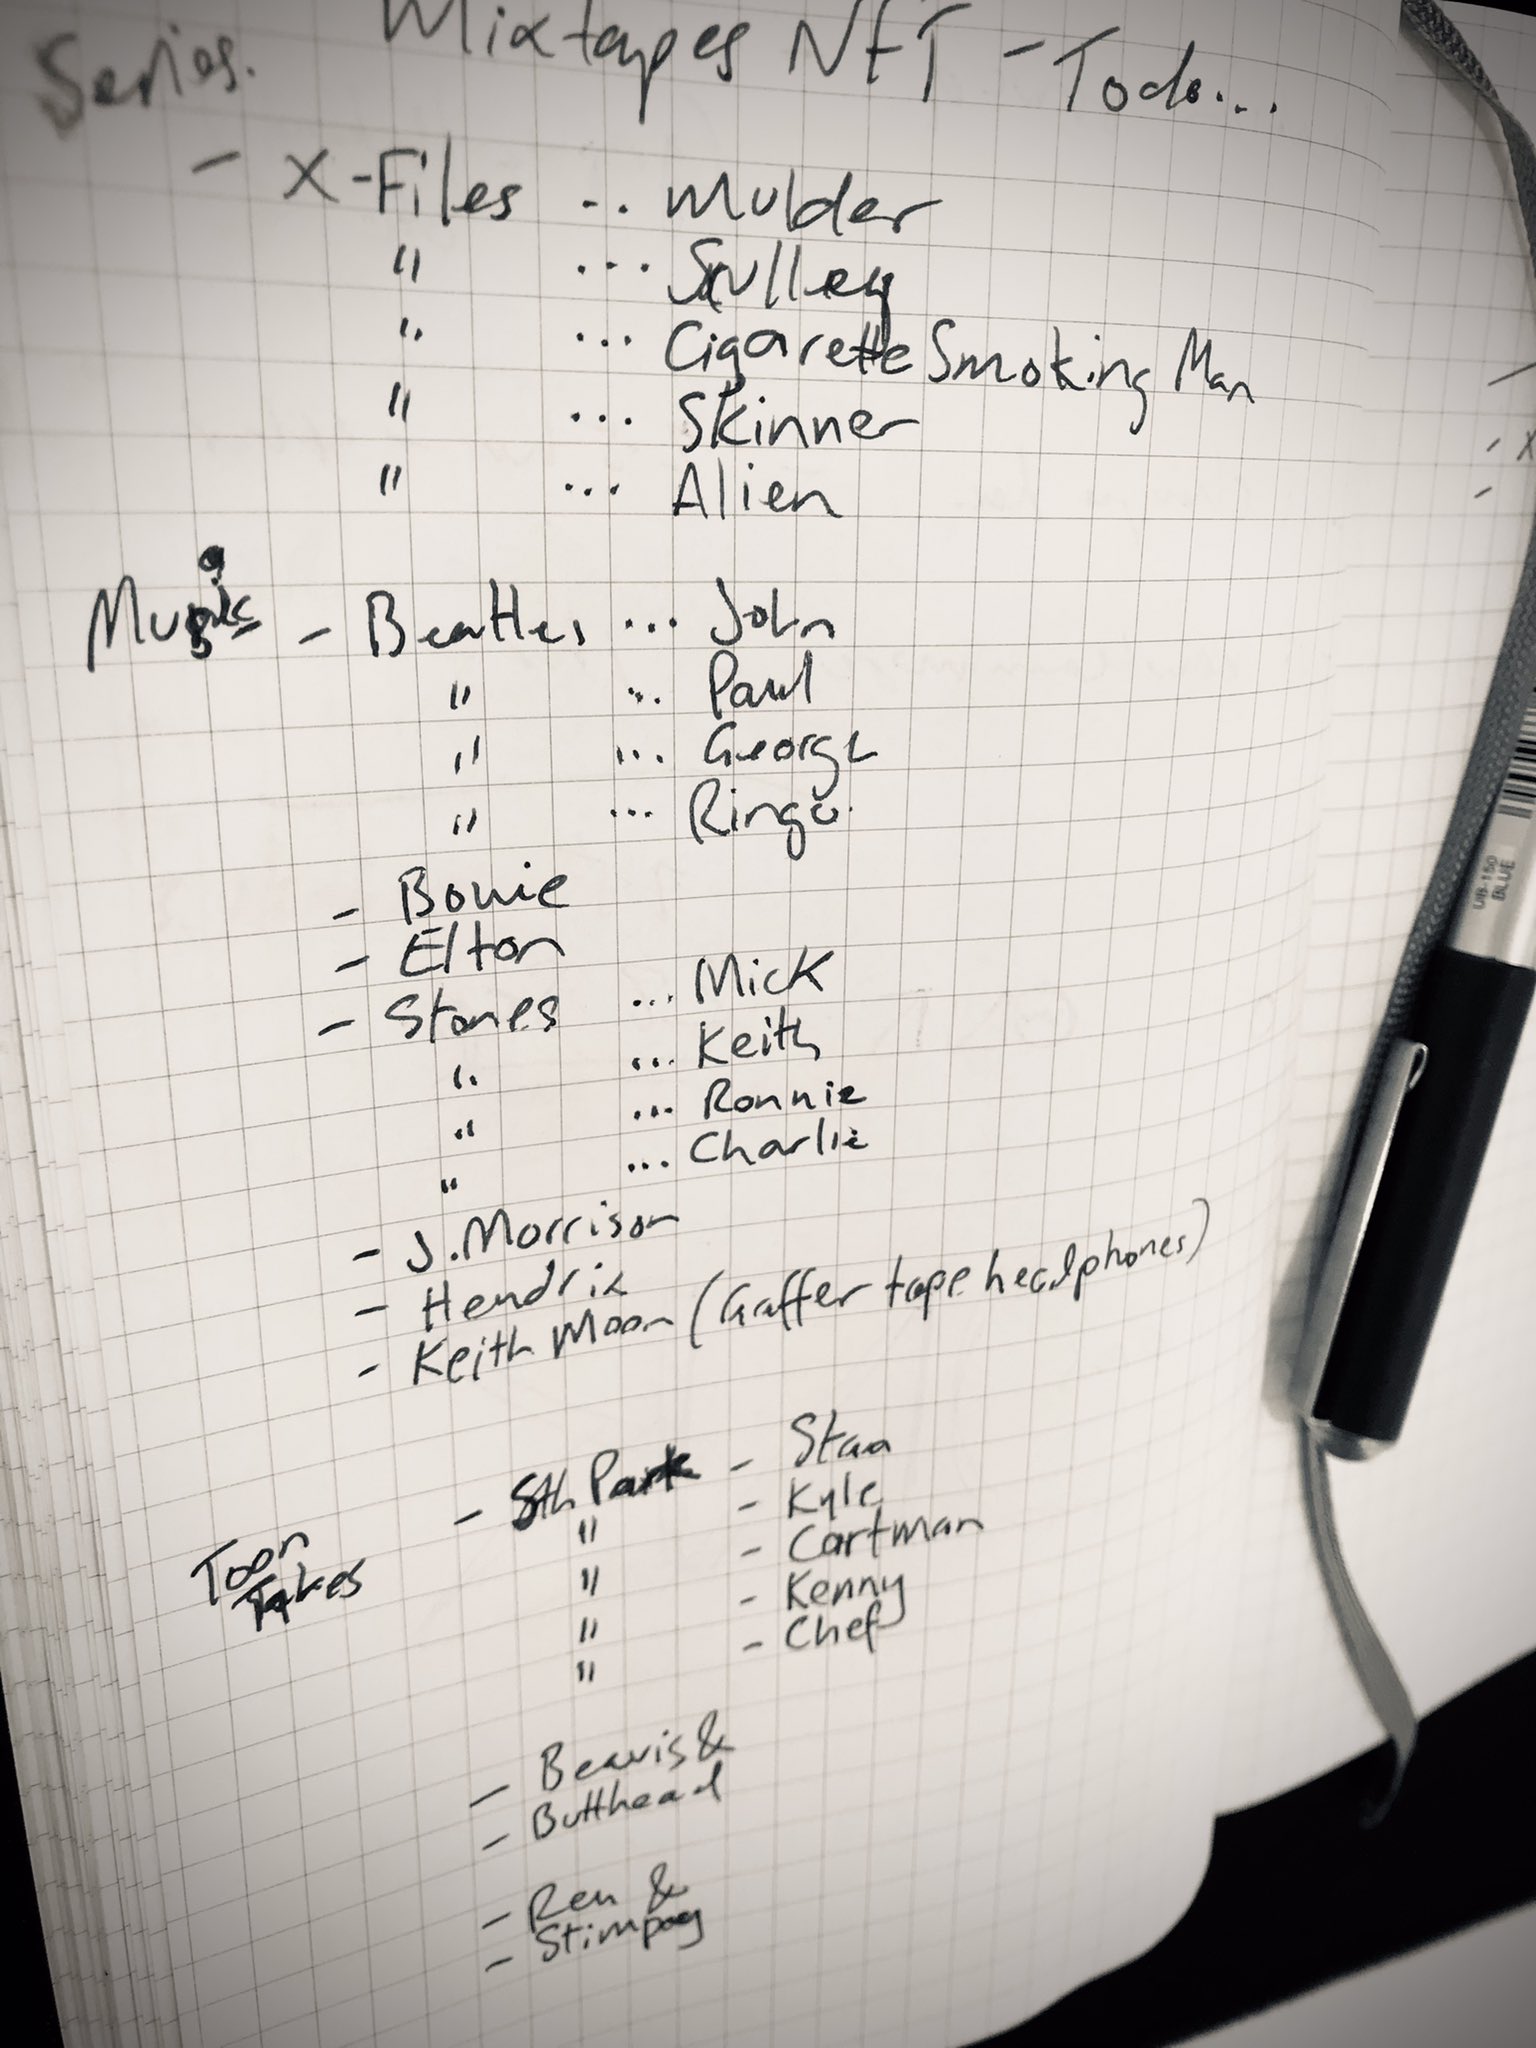 Mixtapes NFT - Todo...
Series.
- X-Files ... Mulder
" ... Sculley
" ... Cigarette Smoking Man
" ... Skinner
" ... Alien
Music - Beatles ... John
" ... Paul
" ... George
" ... Ringo
- Bowie
- Elton
- Stones ... Mick
" ... Keith
" ... Ronnie
" ... Charlie
- J. Morrison
- Hendrix
- Keith Moon (Gaffer tape headphones)
Toon
Takes
- Sth Park - Stan
" - Kyle
" - Cartman
" - Kenny
" - Chef
- Beavis &
- Butthead
- Ren &
- Stimpey
UB-150
BLUE